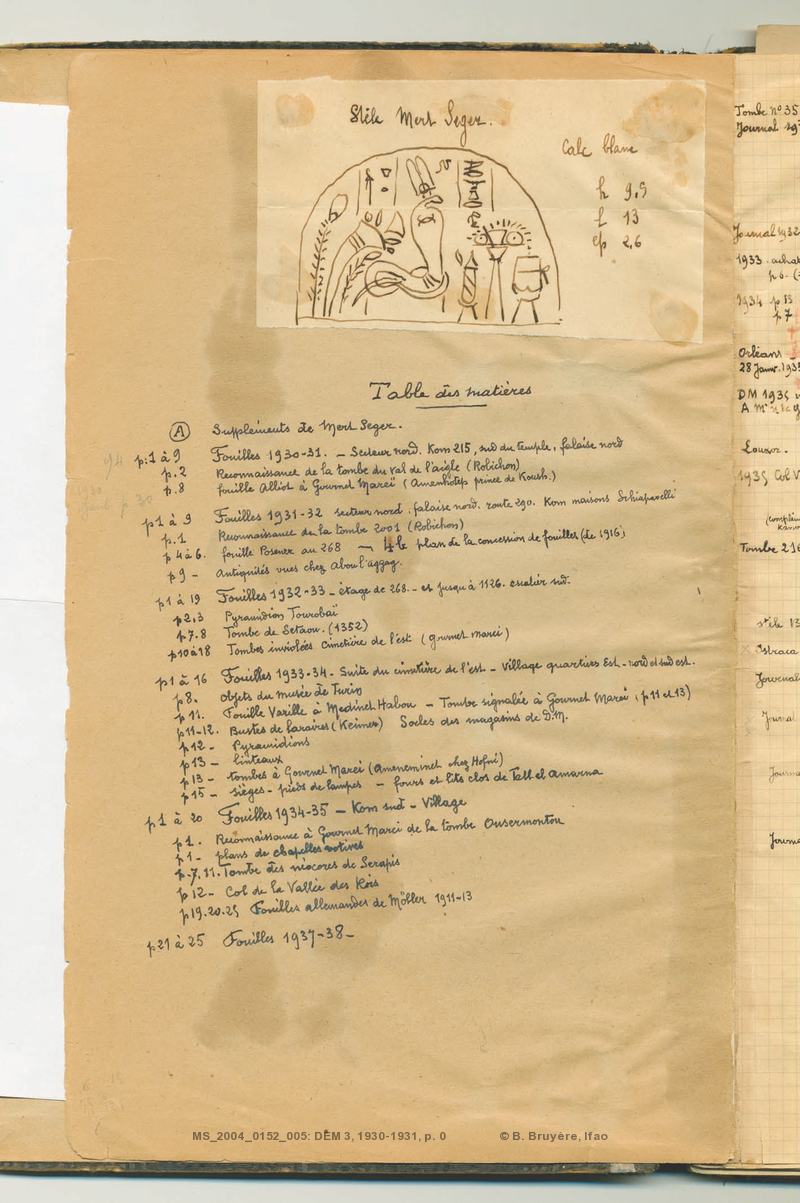 Stèle Mert Seger.
Calc blanc
h 9,5
l 13
ep 2,6
Table des matières
(A) Suppléments de Mert Seger.
p:1 à 9 Fouilles 1930-31. – Secteur nord. Kom 215, sud du temple, falaise nord
p.2 Reconnaissance de la tombe du val de l'aigle (Robichon)
p.8 fouille Alliot à Gournet Mareï (Amenhotep prince de Koush.)
p1 à 9 Fouilles 1931-32 secteur nord. falaise nord. route 290. Kom maisons Schiaparelli
p.1 Reconnaissance de la tombe 2001 (Robichon)
p 4 à 6. fouille Posener au 268 – plan de la concession de fouilles (de 1916)
p9 – Antiquités vues chez Aboul'aggag.
p1 à 19 Fouilles 1932-33 – étage de 268. – et jusqu'à 1126. escalier sud.
p2,3 Pyramidion Tourobaï
p.7.8 Tombe de Setaou. (1352)
p10à18 Tombes inviolées cimetière de l'est (gournet mareï)
p1 à 16 Fouilles 1933-34 – Suite du cimetière de l'est – Village quartiers Est – nord et sud est.
p8. objets du musée de Turin
p11. Fouille Varille à Medinet Habou – Tombe signalée à Gournet Mareï (p11 et 13)
p11-12. Bustes de laraires (Keimer) Socles des magasins de D.M.
p12 – Pyramidions
p13 – linteaux
p13 – tombes à Gournet Mareï (Ameneminet chez Hofni)
p15 – sièges – pieds de lampes – fours et lits clos de Tell el Amarna
p1 à 20 Fouilles 1934-35 – Kom sud – Village
p1. Reconnaissance à Gournet Mareï de la tombe Ousermontou
p1 – plans de chapelles votives
p.7.11. Tombe des néocores de Serapis
p12 – Col de la Vallée des Rois
p19.20.25 Fouilles allemandes de Möller 1911-13
p21 à 25 Fouilles 1937-38 –
Tombe n° 35
Journal
Journal 1932
1933. achat
p6
1934 p 13
p.7
Orléans
28 Janv. 193
DM 1935
Louxor.
1935 Col V
Tombe 216
stèle 13
Ostraca
Journal
Journal
MS_2004_0152_005: DEM 3, 1930-1931, p. 0 © B. Bruyère, Ifao